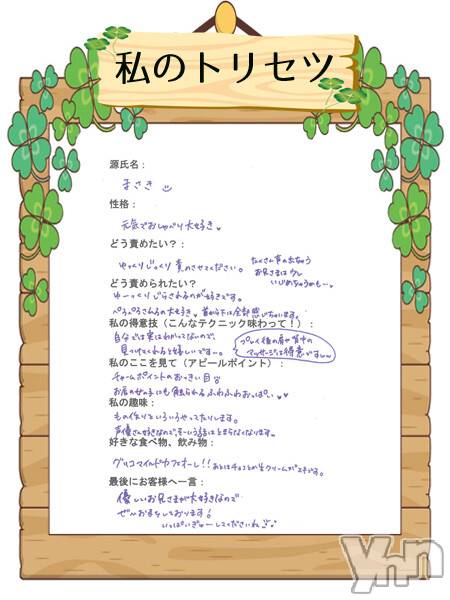 私のトリセツ
源氏名：
まさき
性格：
元気でおしゃべり大好き
どう責めたい？：
ゆっくりじっくり責めさせてください。
たくさん声の出ちゃう
お兄さまは
いじめちゃうかも〜
どう責められたい？：
ゆーっくりじらされるのが好きです。
ぺろぺろされるの大好き 首から下は全部感じちゃいます。
私の得意技（こんなテクニック味わって！）：
自分では実はわかってないので、
見つけてくれると嬉しいですー。
プレイ後の肩や背中の
マッサージは得意です
私のここを見て（アピールポイント）：
チャームポイントのおっきい目
お店の女の子にも触られるふわふわおっぱい
私の趣味：
もの作りといろいろやってたりします。
声優さん好きなので、そーいう話はとまらなくなります
好きな食べ物、飲み物：
グリコマイルドカフェオーレ!! あとはチョコとか生クリームがスキです。
最後にお客様へ一言：
優しいお兄さまが大好きなので
ぜひお待ちしております！
いっぱいぎゅーしてくださいね
ynn